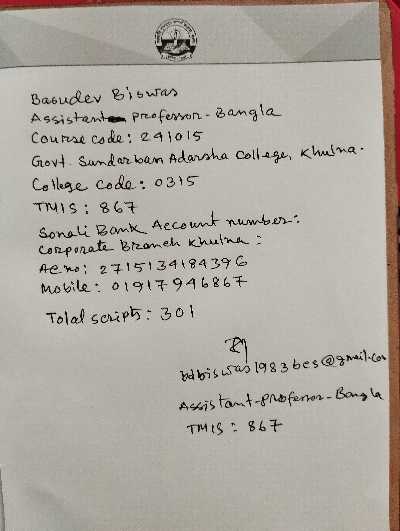 Basudev Biswas
Assistant Professor - Bangla
Course code: 241015
Govt. Sundarban Adarsha College, Khulna.
College Code: 0315
TMIS: 867
Sonali Bank Account number:
Corporate Branch Khulna:
Ac no: 2715134184396
Mobile: 01917946867
Total scripts: 301
bdbiswas1983bcs@gmail.com
Assistant-Professor-Bangla
TMIS: 867